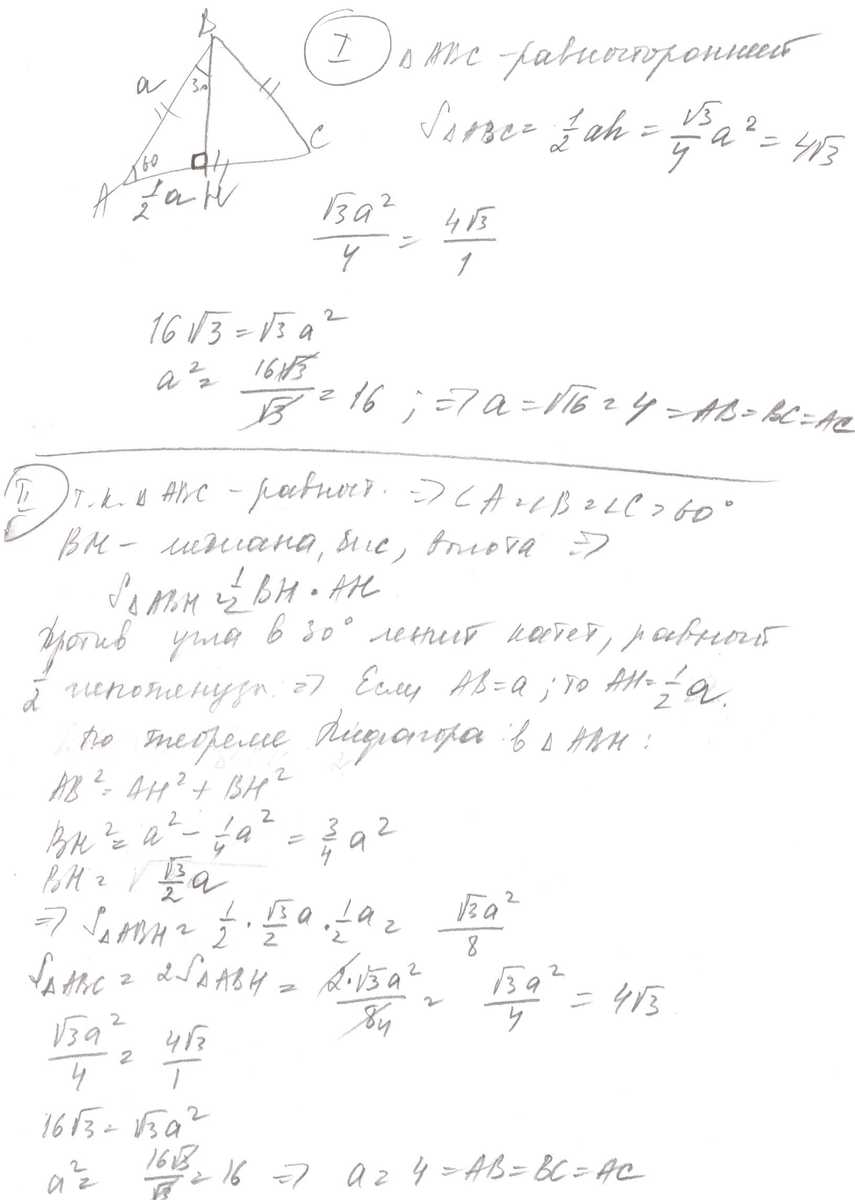 B
a
30
60
A
C
1/2 a H
I
△ ABC - равносторонний
S△ABC = 1/2 ah = √3/4 a² = 4√3
√3a²/4 = 4√3/1
16√3 = √3a²
a² = 16√3/√3 = 16 ; => a = √16 = 4 = AB = BC = AC
II
т.к. △ ABC - равност. => ∠A = ∠B = ∠C = 60°
BH - медиана, бис, высота =>
S△ABH = 1/2 BH · AH
Против угла в 30° лежит катет, равный
1/2 гипотенузы => Если AB = a ; то AH = 1/2 a.
По теореме Пифагора в △ ABH :
AB² = AH² + BH²
BH² = a² - 1/4 a² = 3/4 a²
BH = √3/2 a
=> S△ABH = 1/2 · √3/2 a · 1/2 a = √3a²/8
S△ABC = 2S△ABH = 2·√3a²/84 = √3a²/4 = 4√3
√3a²/4 = 4√3/1
16√3 = √3a²
a² = 16√3/√3 = 16 => a = 4 = AB = BC = AC